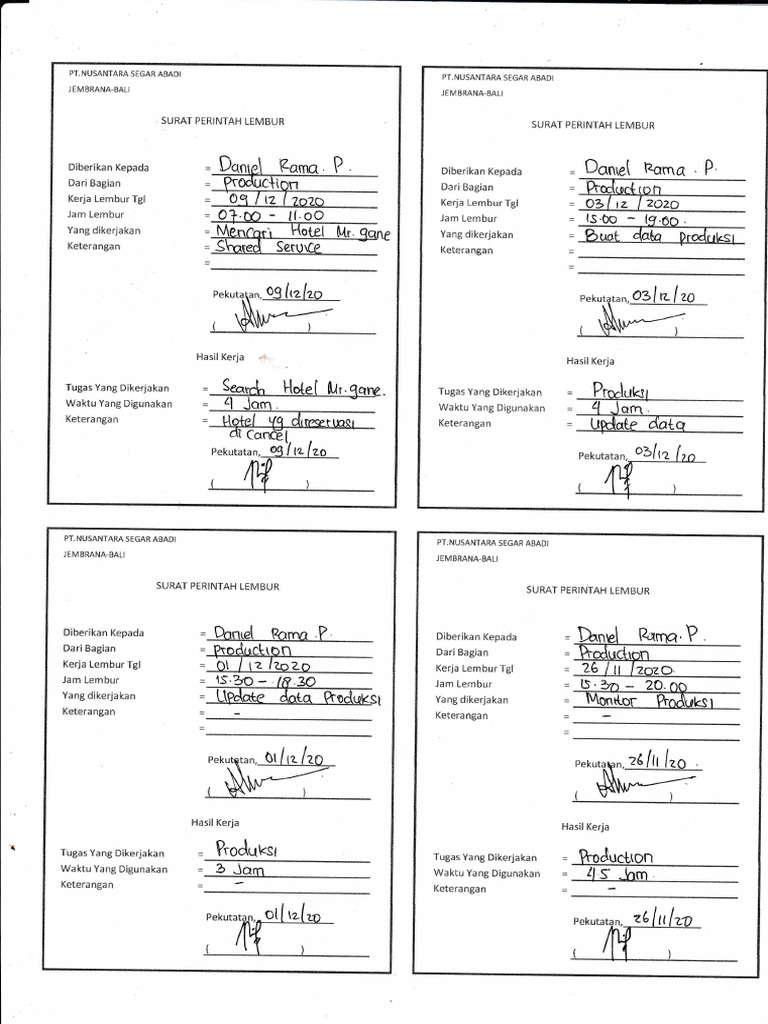 PT.NUSANTARA SEGAR ABADI
JEMBRANA-BALI
SURAT PERINTAH LEMBUR
Diberikan Kepada = Daniel Rama. P.
Dari Bagian = Production
Kerja Lembur Tgl = 09 / 12 / 2020
Jam Lembur = 07.00 - 11.00
Yang dikerjakan = Mencari Hotel Mr. gane
Keterangan = Shared Service
=
Pekutatan, 09/12/20
( )
Hasil Kerja
Tugas Yang Dikerjakan = Search Hotel Mr. gane.
Waktu Yang Digunakan = 4 Jam.
Keterangan = Hotel yg direservasi
di Cancel
Pekutatan, 09/12/20
( )
PT.NUSANTARA SEGAR ABADI
JEMBRANA-BALI
SURAT PERINTAH LEMBUR
Diberikan Kepada = Daniel Rama. P.
Dari Bagian = Production
Kerja Lembur Tgl = 03 / 12 / 2020
Jam Lembur = 15.00 - 19.00.
Yang dikerjakan = Buat data produksi
Keterangan =
=
Pekutatan, 03/12/20
( )
Hasil Kerja
Tugas Yang Dikerjakan = Produksi
Waktu Yang Digunakan = 4 Jam.
Keterangan = Update data
Pekutatan, 03/12/20
( )
PT.NUSANTARA SEGAR ABADI
JEMBRANA-BALI
SURAT PERINTAH LEMBUR
Diberikan Kepada = Daniel Rama. P.
Dari Bagian = production
Kerja Lembur Tgl = 01 / 12 / 2020
Jam Lembur = 15.30 - 18.30
Yang dikerjakan = Update data Produksi
Keterangan = -
=
Pekutatan, 01/12/20
( )
Hasil Kerja
Tugas Yang Dikerjakan = Produksi
Waktu Yang Digunakan = 3 Jam
Keterangan = -
Pekutatan, 01/12/20
( )
PT.NUSANTARA SEGAR ABADI
JEMBRANA-BALI
SURAT PERINTAH LEMBUR
Diberikan Kepada = Daniel Rama. P.
Dari Bagian = Production
Kerja Lembur Tgl = 26 / 11 / 2020
Jam Lembur = 15.30 - 20.00
Yang dikerjakan = Monitor Produksi
Keterangan = -
=
Pekutatan, 26/11/20.
( )
Hasil Kerja
Tugas Yang Dikerjakan = Production
Waktu Yang Digunakan = 4.5 Jam.
Keterangan = -
Pekutatan, 26/11/20
( )